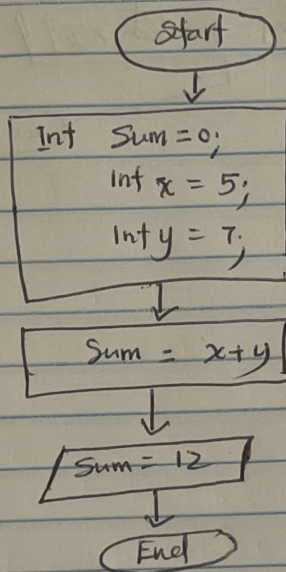 Start
Int Sum = 0;
Int x = 5;
Int y = 7;
Sum = x+y
Sum = 12
End